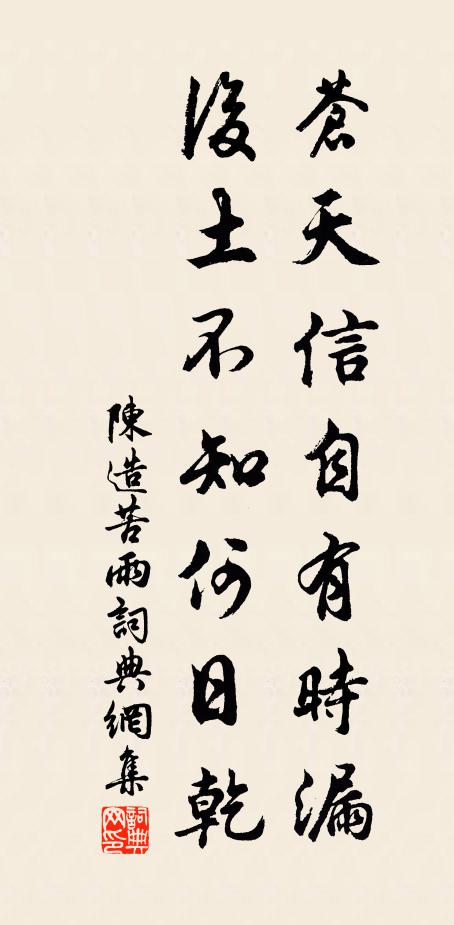 蒼天信自有時漏
後土不知何日乾
陳造苦雨詞典網集
詞典網印